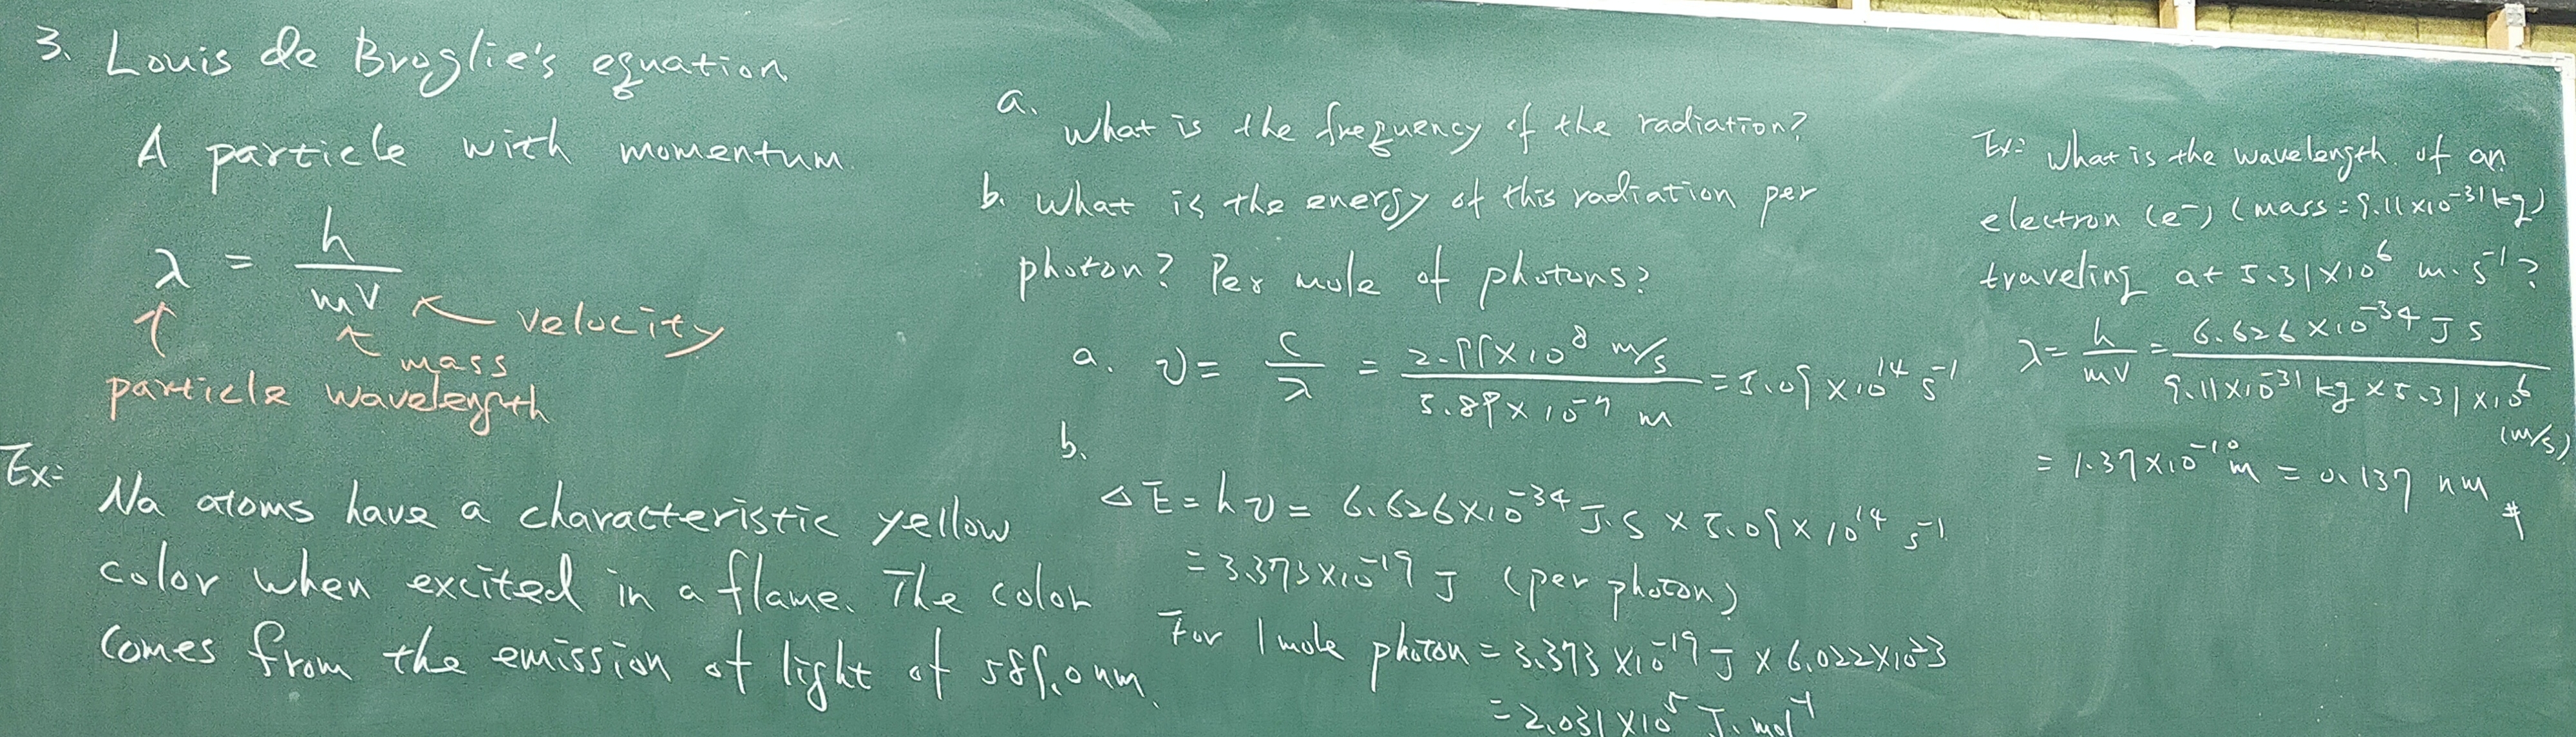 3. Louis de Broglie's equation
A particle with momentum.
λ = h / mv
velocity
mass
particle wavelength
Ex: Na atoms have a characteristic yellow
color when excited in a flame. The color
comes from the emission of light of 589.0 nm.
a. What is the frequency of the radiation?
b. What is the energy of this radiation per
photon? Per mole of photons?
a. ν = c / λ = 2.99×10⁸ m/s / 5.89×10⁻⁷ m = 5.09×10¹⁴ s⁻¹
b.
ΔE = hν = 6.626×10⁻³⁴ J·s × 5.09×10¹⁴ s⁻¹
= 3.373×10⁻¹⁹ J (per photon)
For 1 mole photon = 3.373×10⁻¹⁹ J × 6.022×10²³
= 2.031×10⁵ J·mol⁻¹
Ex: What is the wavelength of an
electron (e⁻) (mass = 9.11×10⁻³¹ kg)
traveling at 5.31×10⁶ m·s⁻¹?
λ = h / mv = 6.626×10⁻³⁴ J s / 9.11×10⁻³¹ kg × 5.31×10⁶ (m/s)
= 1.37×10⁻¹⁰ m = 0.137 nm #